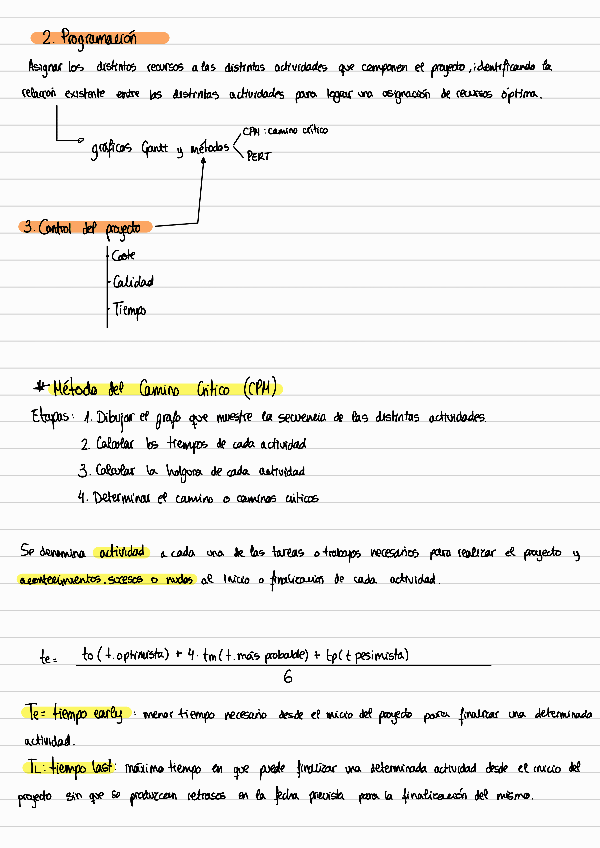 2. Programación
Asignar los distintos recursos a las distintas actividades que componen el proyecto, identificando la
relación existente entre las distintas actividades para lograr una asignación de recursos óptima.
gráficos Gantt y métodos
CPM: camino crítico
PERT
3. Control del proyecto
Coste
Calidad
Tiempo
* Método del Camino Crítico (CPM)
Etapas: 1. Dibujar el grafo que muestre la secuencia de las distintas actividades.
2. Calcular los tiempos de cada actividad
3. Calcular la holgura de cada actividad
4. Determinar el camino o caminos críticos
Se denomina actividad a cada una de las tareas o trabajos necesarios para realizar el proyecto y
acontecimientos, sucesos o nudos al inicio o finalización de cada actividad.
te = to (t. optimista) + 4 · tm (t. más probable) + tp (t pesimista)
6
Te = tiempo early: menor tiempo necesario desde el inicio del proyecto para finalizar una determinada
actividad.
TL: tiempo last: máximo tiempo en que puede finalizar una determinada actividad desde el inicio del
proyecto sin que se produzcan retrasos en la fecha prevista para la finalización del mismo.